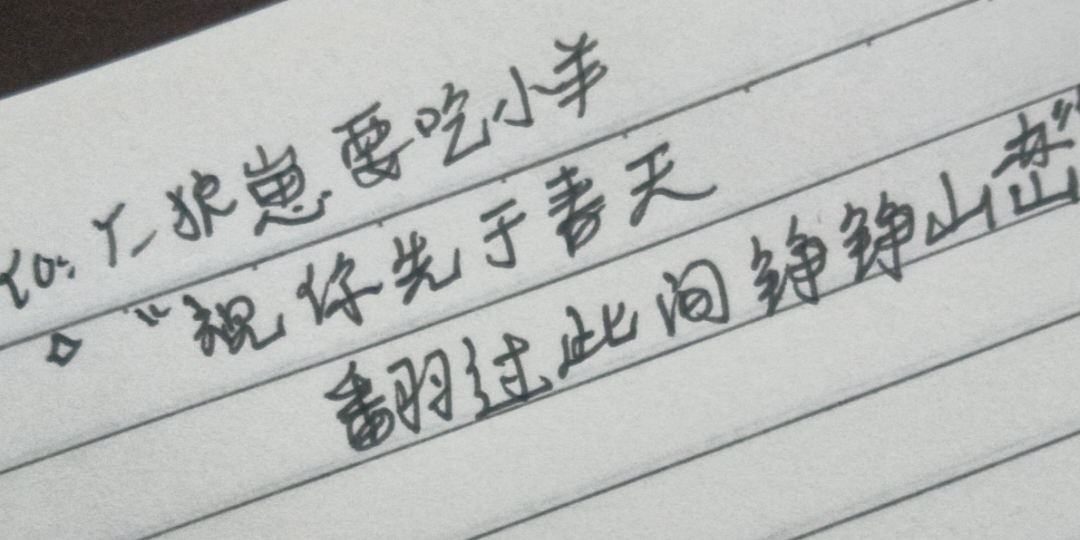 To: 丫_狼崽要吃小羊
◇ “祝你先于春天
翻过此间铮铮山峦”